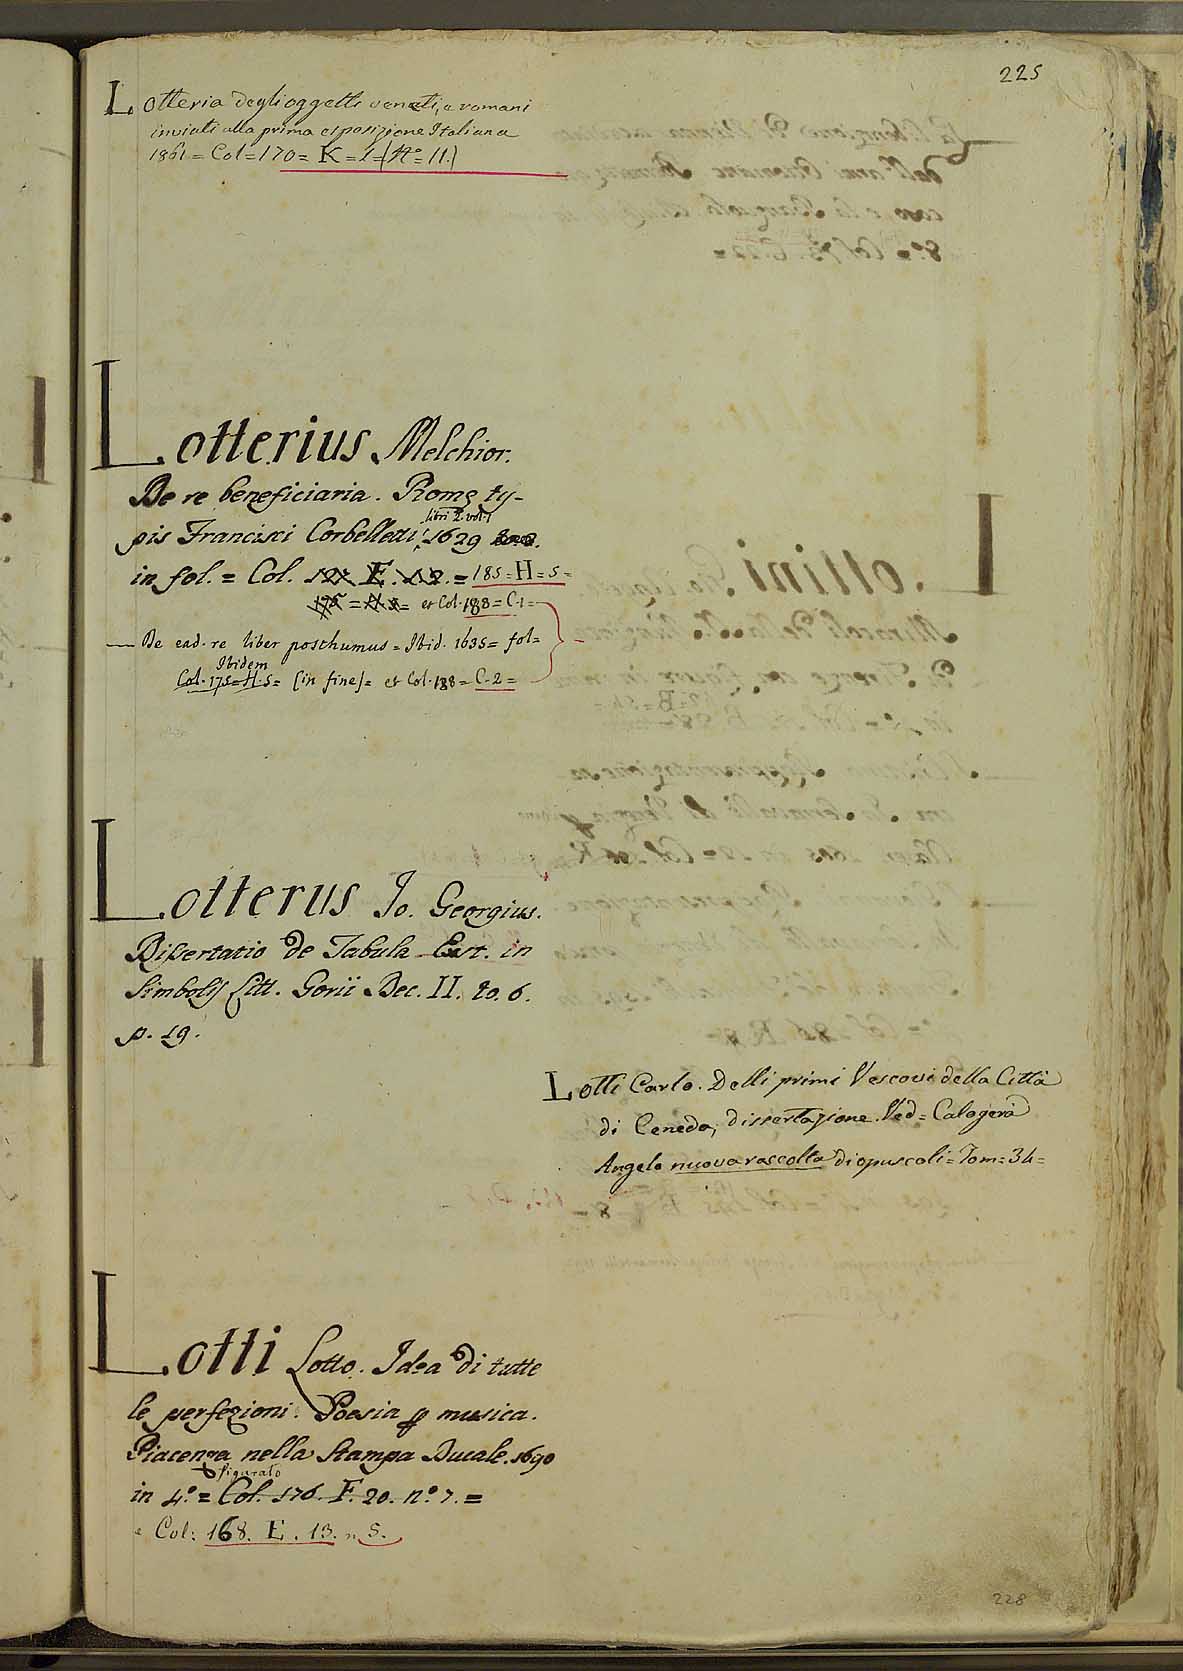 225
Lotteria degli oggetti veneti, e romani
inviati alla prima esposizione Italiana
1861 = Col = 170 = K = 1 = (N.º = 11.)
Lotterius Melchior.
De re beneficiaria. Romę ty-
pis Francisci Corbelletti 1629
libri 2. vol. 1
in fol. = Col. 127. E. 12. = 185 = H = 5 =
175 = H 5 = et Col. 188 = C. 1 =
— De ead. re liber posthumus = Ibid. 1635 = fol =
Ibidem
Col. 175 = H. 5 = (in fine) = et Col. 188 = C. 2 =
Lotterus Jo. Georgius.
Dissertatio de Tabula Est. in
Simbolis Litt. Gorii Dec. II. to. 6.
p. 19.
Lotti Carlo. Delli primi Vescovi della Città
di Ceneda, dissertazione. Ved = Calogerà
Angelo nuova raccolta di opuscoli = Tom = 34 =
Lotti Lotto. Idea di tutte
le perfezioni. Poesia p musica.
Piacenza nella Stampa Ducale. 1690
figurato
in 4.º = Col. 176. F. 20. n.º 7. =
= Col: 168. E. 13. n 5.
228